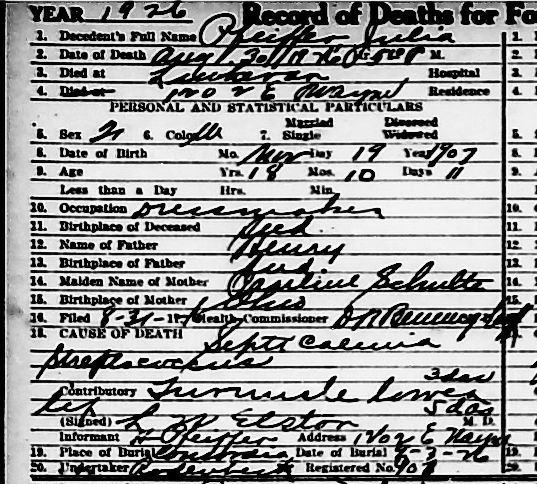 YEAR 1926 Record of Deaths for Fo
1. Decedent's Full Name Pfeiffer Julia
2. Date of Death Aug 30 1926 M.
3. Died at Lutheran Hospital
4. Died at 1202 E Wayne Residence
PERSONAL AND STATISTICAL PARTICULARS
5. Sex F 6. Color W 7. Married Single Divorced Widowed
8. Date of Birth Mo. Nov Day 19 Year 1907
9. Age Yrs. 18 Mos. 10 Days 11
Less than a Day Hrs. Min.
10. Occupation Dressmaker
11. Birthplace of Deceased Ind
12. Name of Father Henry
13. Birthplace of Father Ind
14. Maiden Name of Mother Caroline Schulte
15. Birthplace of Mother Ohio
16. Filed 8-31-1926 Health Commissioner
18. CAUSE OF DEATH Septicaemia
Streptococcus
3 das
Contributory Furuncle lower
lip 5 das
(Signed) L W Elston M. D.
Informant H Pfeiffer Address 1202 E Wayne
19. Place of Burial Concordia Date of Burial 9-3-26
20. Undertaker Registered No. 907